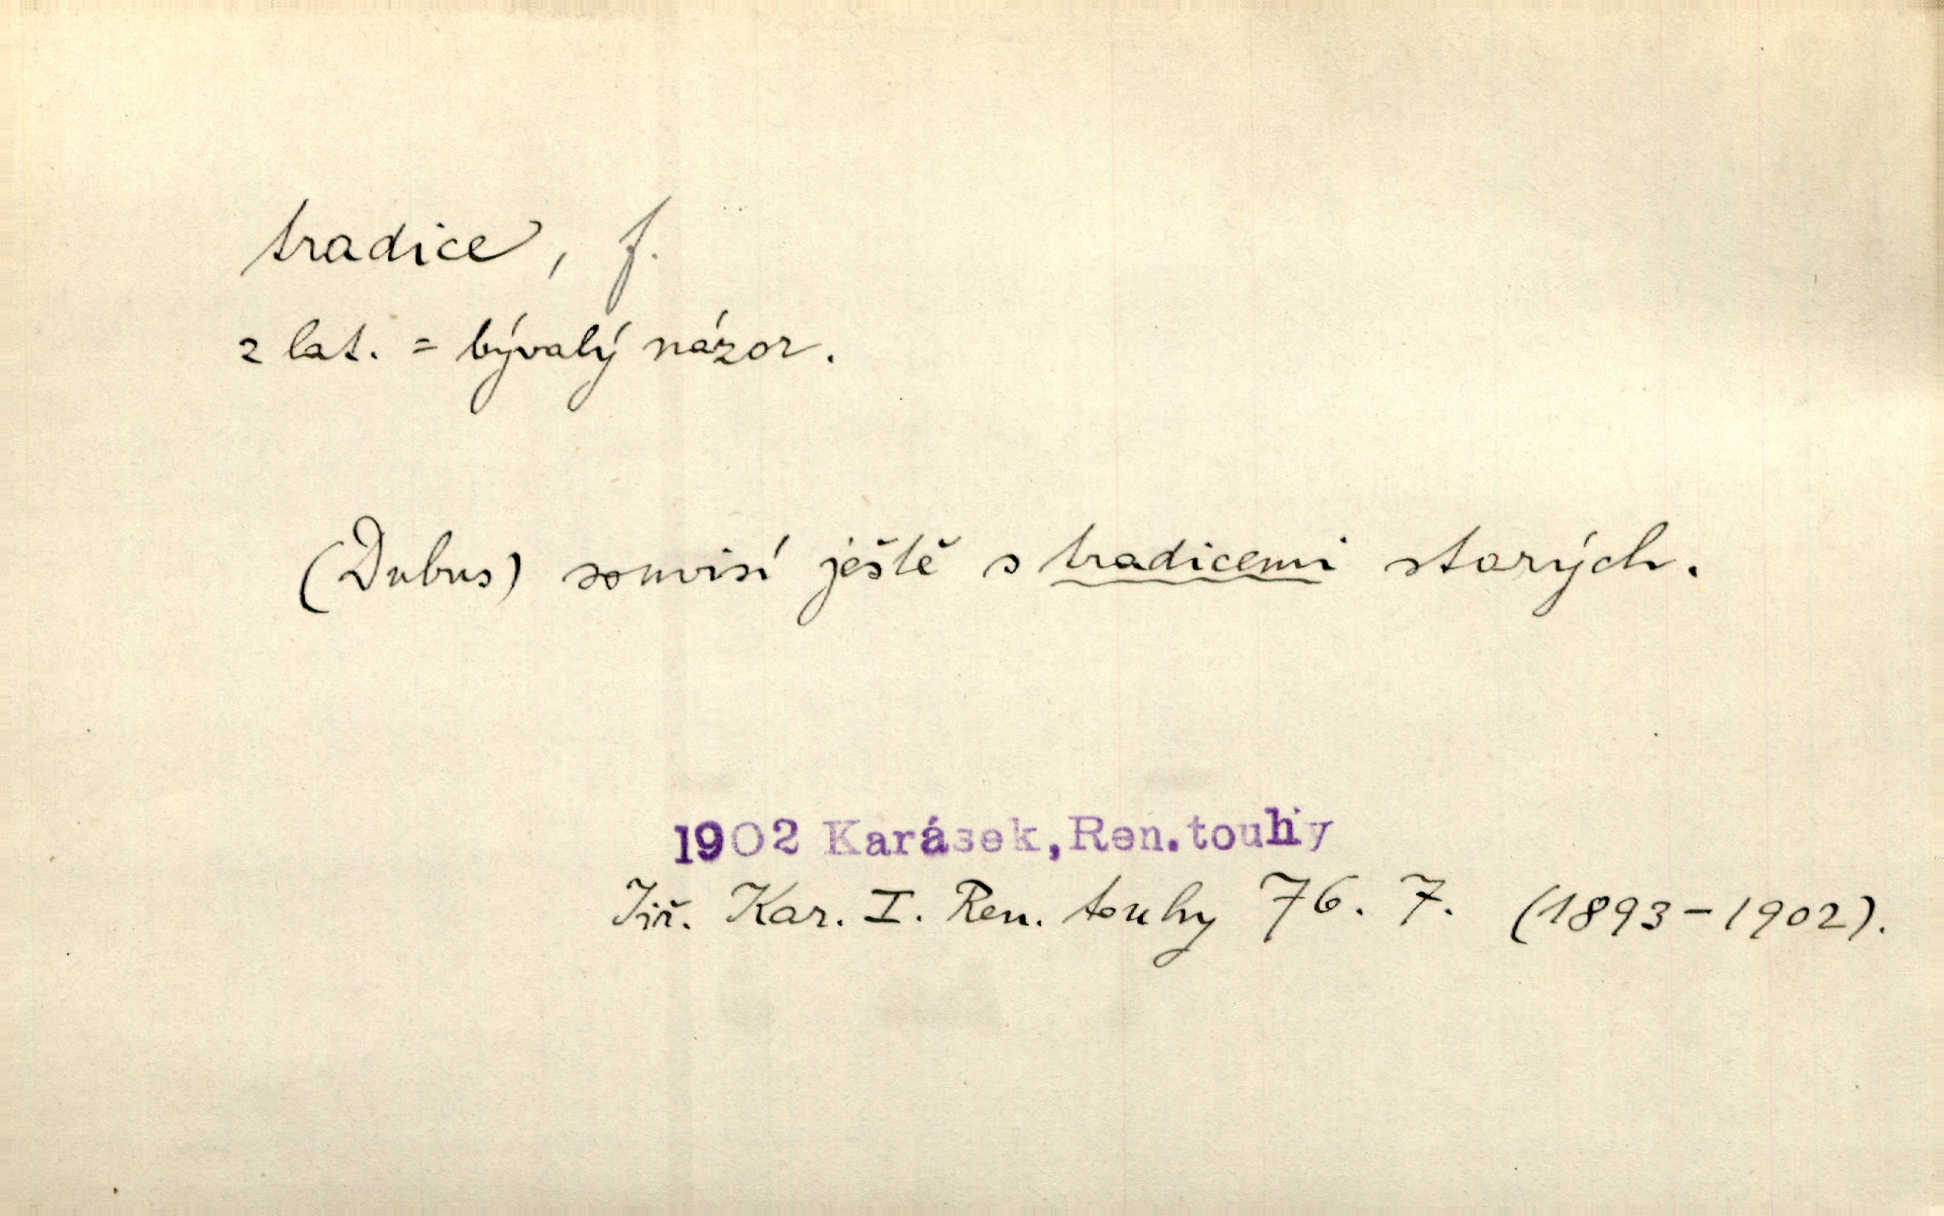 tradice, f.
z lat. = bývalý názor.
(Dubus) souvisí ještě s tradicemi starých.
1902 Karásek, Ren. touhy
Jiř. Kar. I. Ren. touhy 76. 7. (1893-1902).